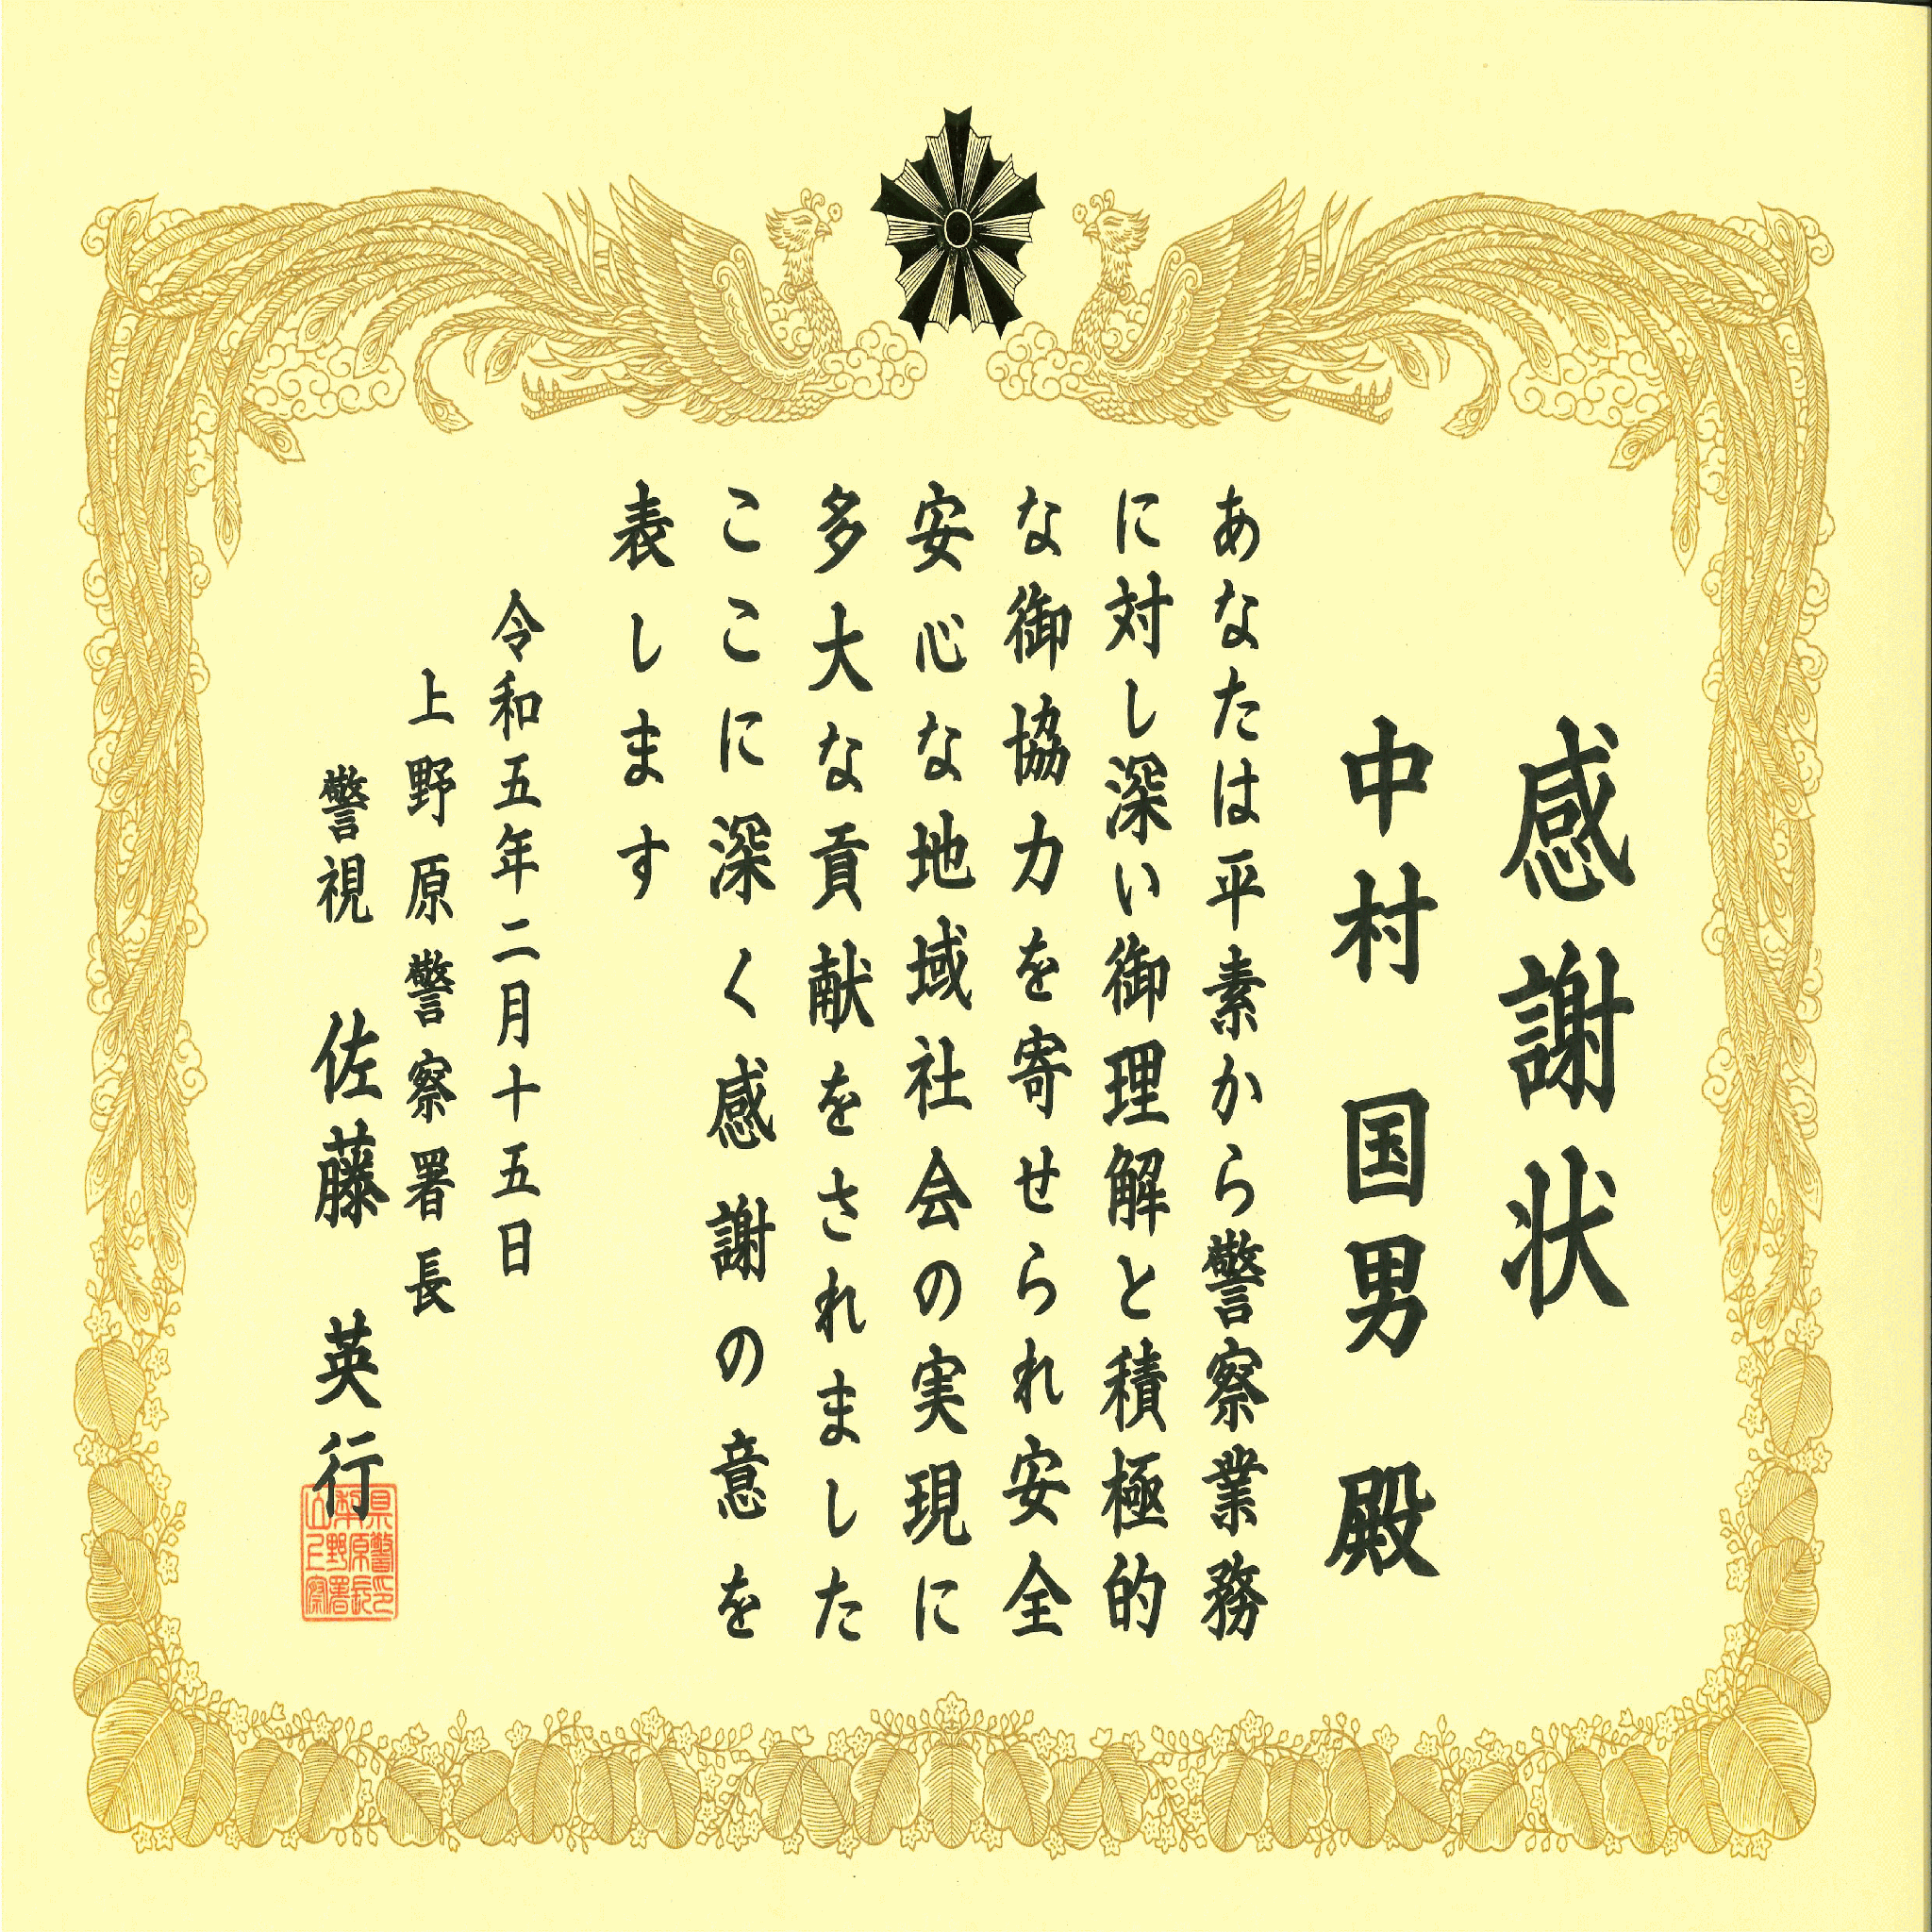 感謝状
中村 国男 殿
あなたは平素から警察業務
に対し深い御理解と積極的
な御協力を寄せられ安全
安心な地域社会の実現に
多大な貢献をされました
ここに深く感謝の意を
表します
令和五年二月十五日
上野原警察署長
警視 佐藤 英行